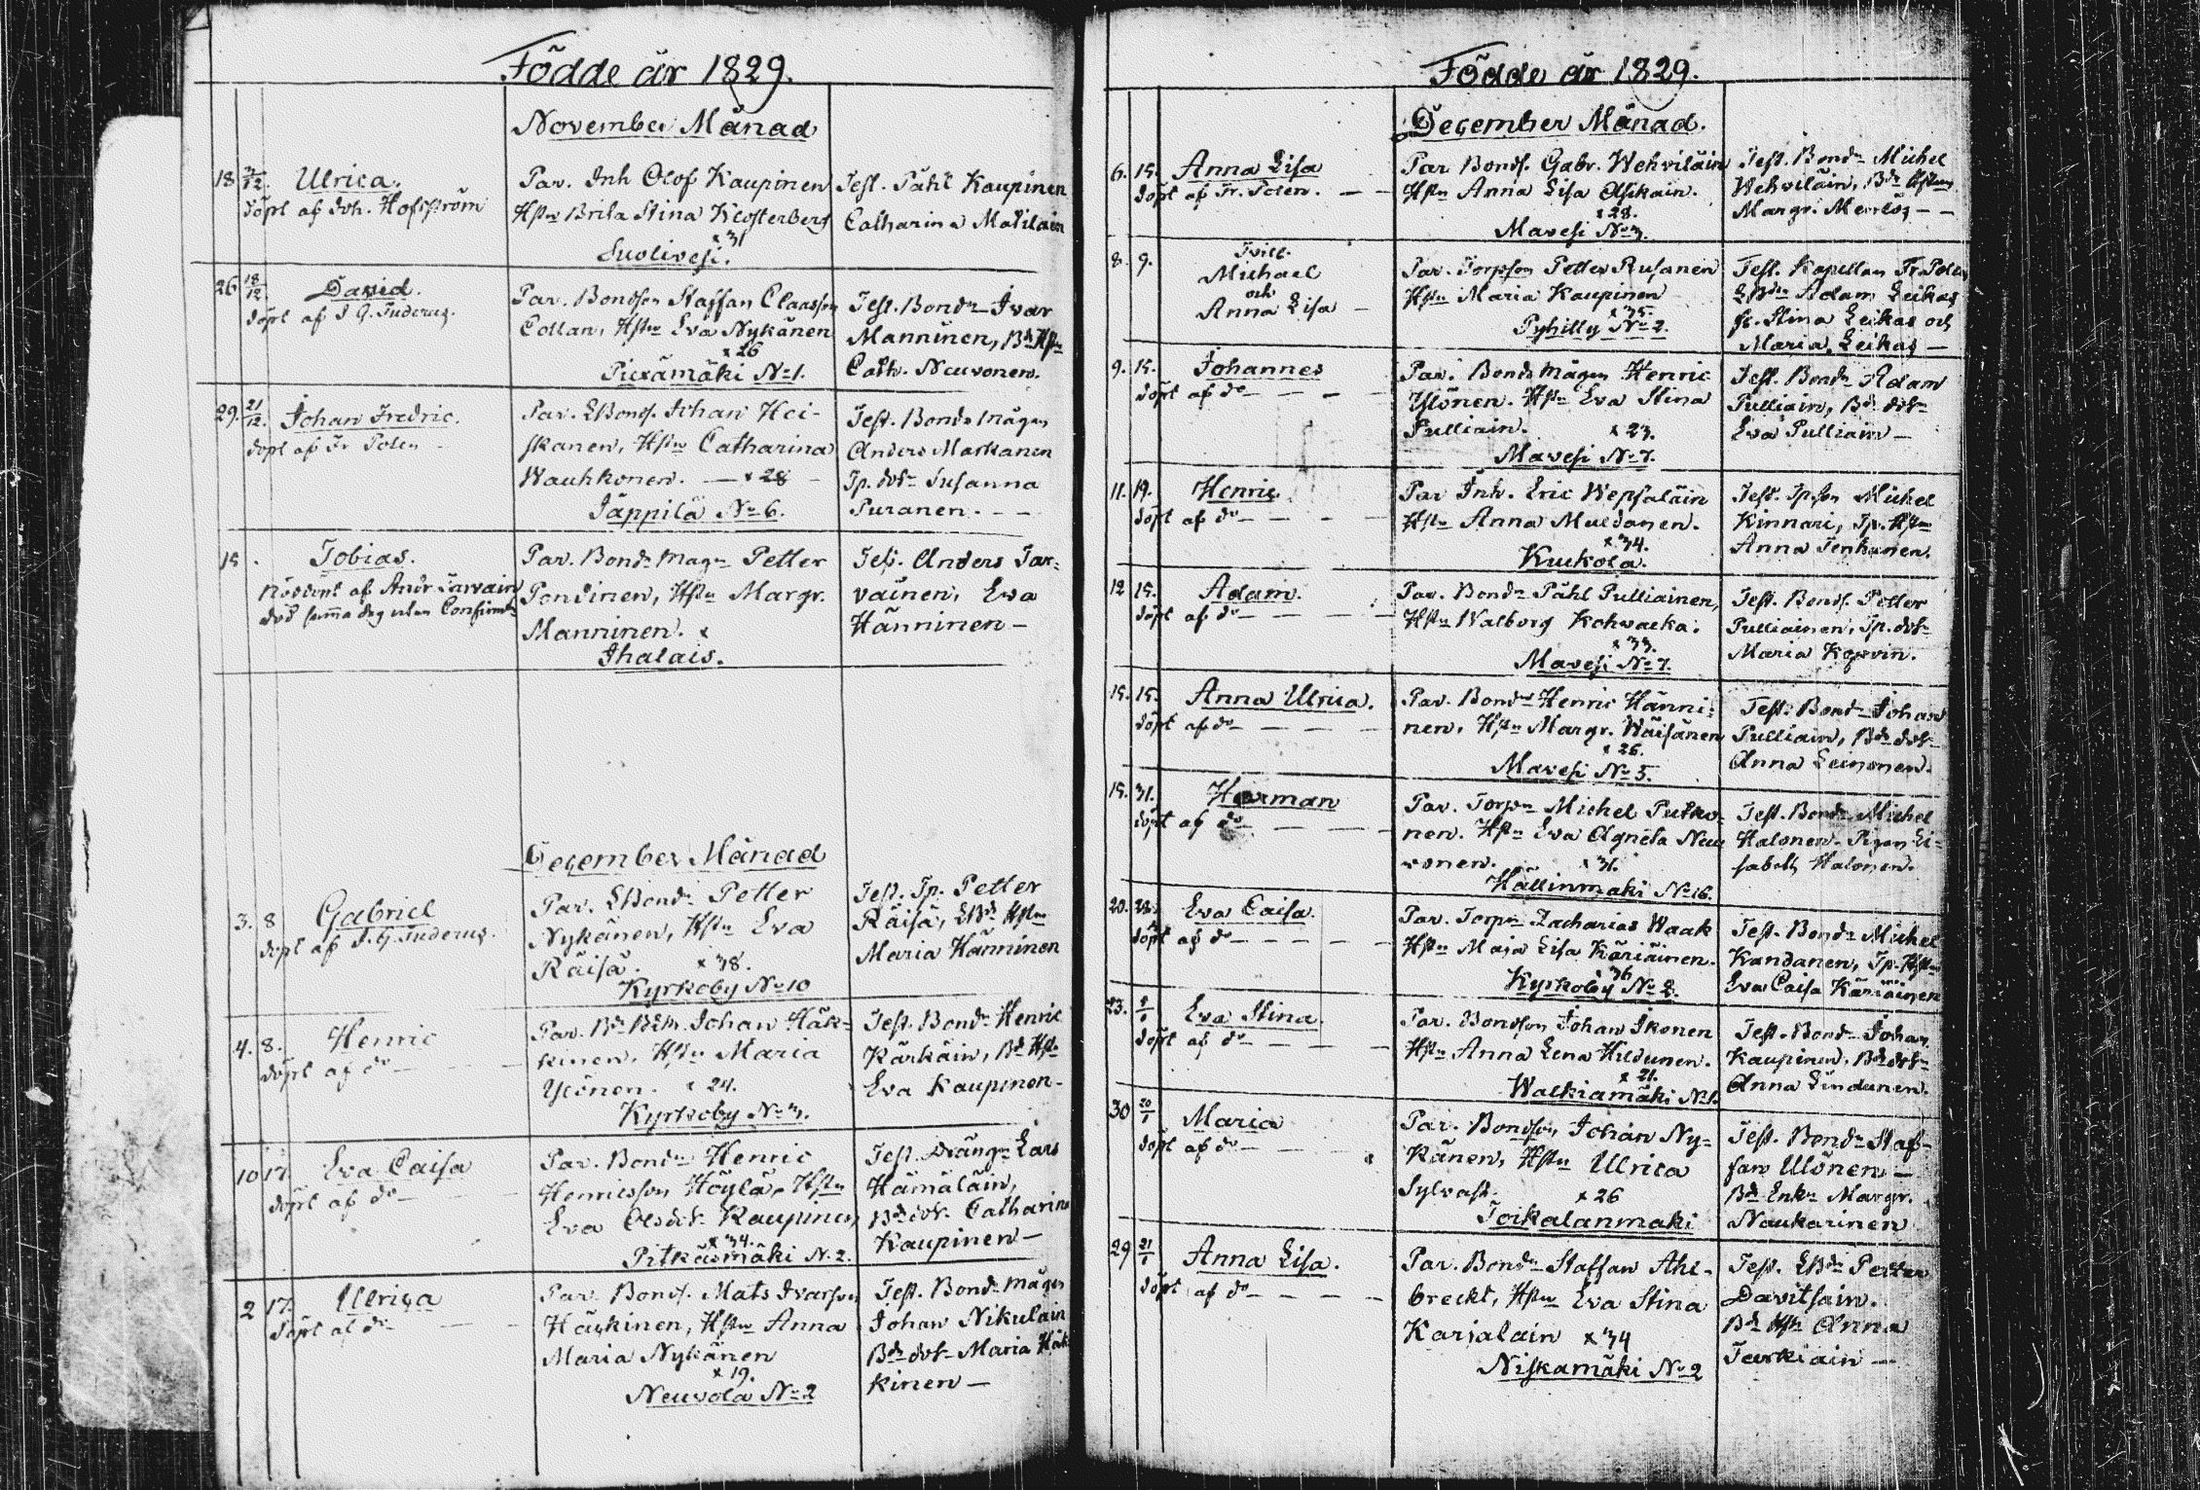 Födde år 1829.
November Månad
18 3/12. Ulrica.
döpt af Joh. Hofström
Par. Inh Olof Kaupinen
Hstru Brita Stina Klosterberg
x 31
Suolivesi.
Test. Påhl Kaupinen
Catharina Matilain
26 18/12. David.
döpt af J G. Tuderus.
Par. Bondson Staffan Claasson
Collan, Hstru Eva Nykänen
x 26
Piexämäki No 1.
Test. Bondn Ivar
Manninen, Bd Hstru
Cath. Neuvonen.
29. 21/12. Johan Fredric.
döpt af Fr Polen
Par. LBonds. Johan Hei-
skanen, Hstru Catharina
Wauhkonen. — x 28
Jäppilä No 6.
Test. Bonds mågen
Anders Markanen
Tp. dotr Susanna
Puranen. - - -
15 . Tobias.
Nöddöpt af Andr Tarvain
död samma dag utan Confirmn
Par. Bonds Mågn Petter
Pondinen, Hstru Margr.
Manninen. x
Ihalais.
Test. Anders Tar-
vainen, Eva
Hänninen —
December Månad
3. 8 Gabriel
döpt af J. G. Tuderus.
Par. LBondn Petter
Nykänen, Hstru Eva
Räisä. x 38.
Kyrkoby No 10
Test. Tp. Petter
Räisä, LBd Hstru
Maria Hänninen
4. 8. Henric
döpt af do — — —
Par. Bd Johan Häk-
kinen, Hstru Maria
Ylönen. x 24.
Kyrkoby No 3.
Test. Bondn Henric
Kärkäin, Bd Hstru
Eva Kaupinen.
10 17. Eva Caisa
döpt af do — — —
Par. Bondn Henric
Henricsson Höylä, Hstru
Eva Olsdotr Kaupinen
x 34.
Pitkäsmäki N. 2.
Test. Drängn Lars
Hämäläin,
Bd dotr. Catharina
Kaupinen —
2 17. Ulrica
döpt af do — —
Par. Bonds. Mats Ivarson
Häckinen, Hstru Anna
Maria Nykänen
x 19.
Neuvola No 2
Test. Bonds mågen
Johan Nikulain
Bds dotr Maria Häk
kinen —
Födde år 1829.
December Månad.
6. 15. Anna Lisa
döpt af Fr. Polen. — —
Par Bonds. Gabr. Wehviläin
Hstru Anna Lisa Asikain.
x 28.
Mavesi No 3.
Test. Bondn Michel
Wehviläin, Bds Hstru
Margr. — —
8. 9. Tvill.
Michael
och
Anna Lisa —
Par. Torpson Petter Rusanen
Hstru Maria Kaupinen
x 35.
Pyhilty No 2.
Test. Kapellan Fr. Polen
LBdn Adam Leikas
Stina Leikas och
Maria Leikas —
9. 15. Johannes
döpt af do — — — —
Par. Bonds Mågen Henric
Ylönen. Hstru Eva Stina
Pulliain. x 23.
Mavesi No 7.
Test. Bondn Adam
Pulliain, Bds dotr
Eva Pulliain —
11. 19. Henric
döpt af do — — — —
Par Inh. Eric Wepsäläin
Hstru Anna Muldonen.
x 34.
Kuckola.
Test. Tpson Michel
Kinnari, Tp. Hstru
Anna Tenhunen.
12 15. Adam.
döpt af do — — — —
Par. Bondn Påhl Pulliainen,
Hstru Walborg Kohvacka.
x 33.
Mavesi No 7.
Test. Bonds. Petter
Pulliainen, Tp. dotr
Maria Kopvin.
15. 15. Anna Ulrica.
döpt af do — — — —
Par. Bondn Henric Hänni-
nen, Hstru Margr. Wäisänen
x 26.
Mavesi No 5.
Test. Bondn Johan
Pulliain, Bds dotr
Anna Leinonen.
15. 31. Herman
döpt af do — — — —
Par. Torpn Michel Putko-
nen. Hstru Eva Agneta Neu
vonen. x 31.
Hällinmäki No 16.
Test. Bondn Michel
Halonen. Pigan Li-
sabeth Halonen.
20. Eva Caisa.
döpt af do — — — —
Par. Torpn Zacharias Waak
Hstru Maja Lisa Käriäinen.
36
Kyrkoby No 2.
Test. Bondn Michel
Kandanen, Tp. Hstru
Eva Caisa Käriäinen
23. Eva Stina.
döpt af do — — — —
Par. Bondson Johan Ikonen
Hstru Anna Lena Hildunen.
x 21.
Walkiamäki No 1.
Test. Bondn Johan
Kaupinen, Bds dotr
Anna Lindunen.
30 20/1 Maria
döpt af do — — — —
Par. Bondson Johan Ny-
känen, Hstru Ulrica
Sylvast. x 26
Toikalanmaki
Test. Bondn Staf-
fan Ulönen —
Bds Enka Margr.
Naukarinen
29 21/1 Anna Lisa.
döpt af do — — — —
Par. Bondn Staffan Ahl-
breckt, Hstru Eva Stina
Karjalain x 34
Niskamäki No 2
Test. LBdn Petter
Davitsain.
Bds Hstr Anna
Teurkiain —